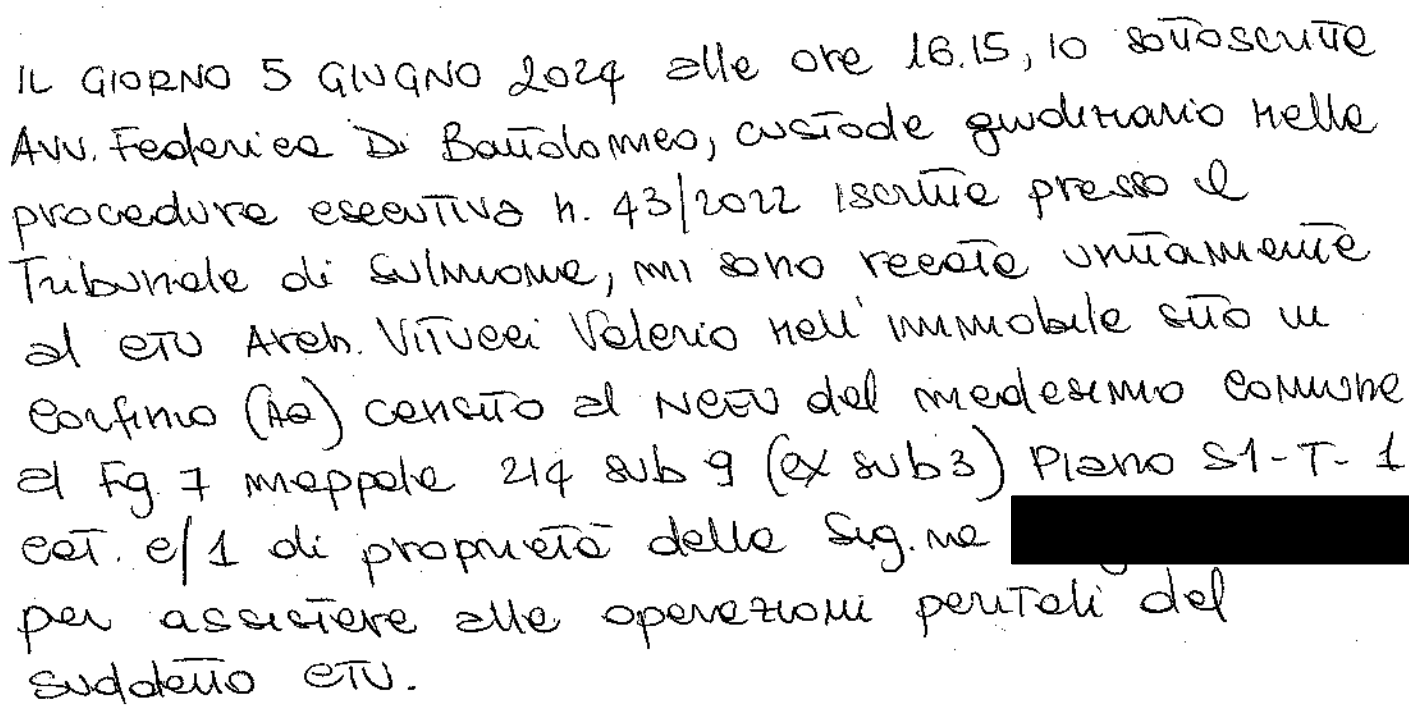 IL GIORNO 5 GIUGNO 2024 alle ore 16.15, io sottoscritta
Avv. Federica Di Bartolomeo, custode giudiziario nella
procedura esecutiva n. 43/2022 iscritta presso il
Tribunale di Sulmona, mi sono recata unitamente
al CTU Arch. Vitucci Valerio nell'immobile sito in
Corfinio (AQ) censito al NCEU del medesimo comune
al Fg. 7 mappale 214 sub 9 (ex sub 3) Piano S1-T-1
cat. C/1 di proprietà della Sig.ra
per assistere alle operazioni peritali del
suddetto CTU.